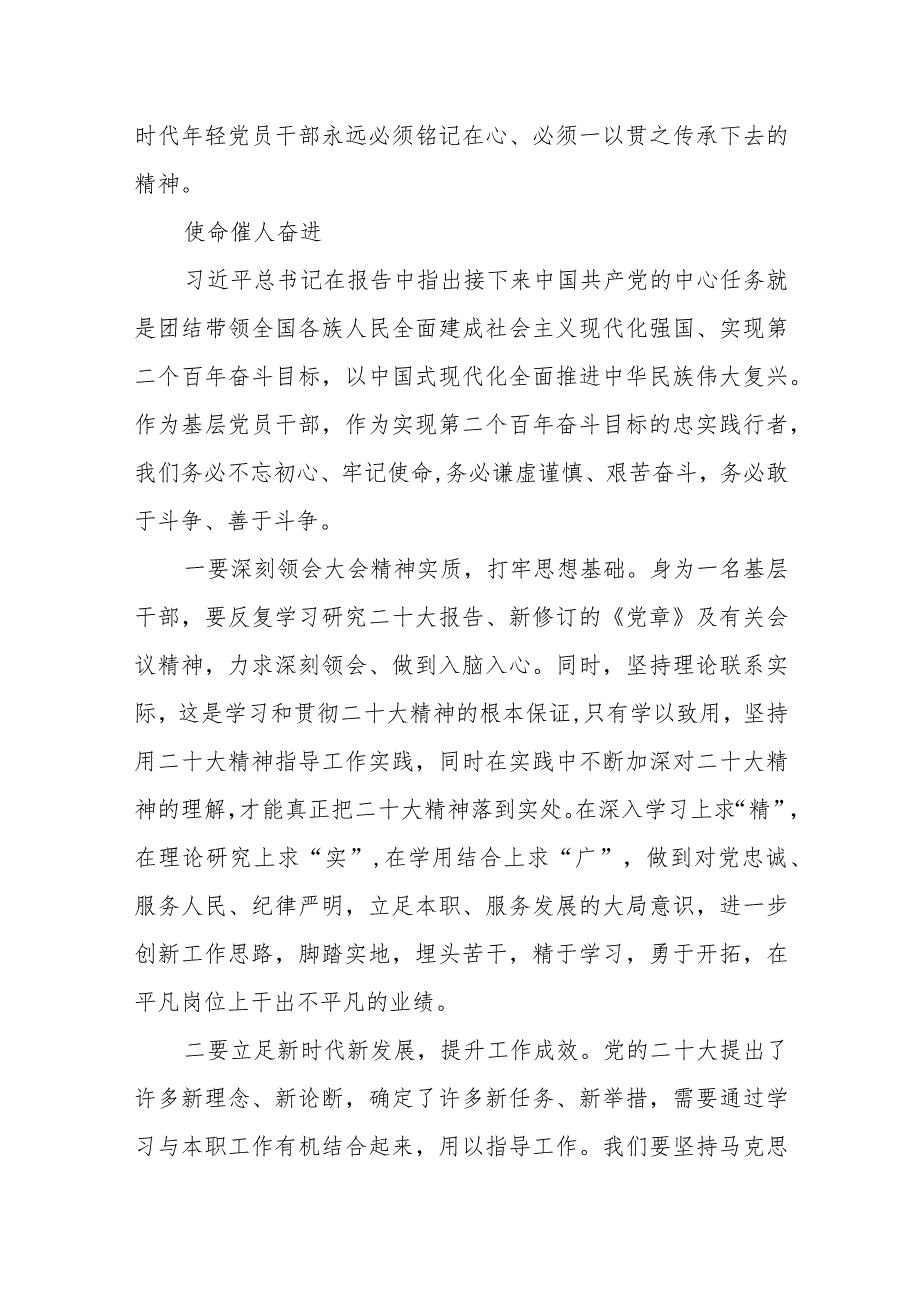 时代年轻党员干部永远必须铭记在心、必须一以贯之传承下去的
精神。
使命催人奋进
习近平总书记在报告中指出接下来中国共产党的中心任务就
是团结带领全国各族人民全面建成社会主义现代化强国、实现第
二个百年奋斗目标，以中国式现代化全面推进中华民族伟大复兴。
作为基层党员干部，作为实现第二个百年奋斗目标的忠实践行者，
我们务必不忘初心、牢记使命,务必谦虚谨慎、艰苦奋斗，务必敢
于斗争、善于斗争。
一要深刻领会大会精神实质，打牢思想基础。身为一名基层
干部，要反复学习研究二十大报告、新修订的《党章》及有关会
议精神，力求深刻领会、做到入脑入心。同时，坚持理论联系实
际，这是学习和贯彻二十大精神的根本保证,只有学以致用，坚持
用二十大精神指导工作实践，同时在实践中不断加深对二十大精
神的理解,才能真正把二十大精神落到实处。在深入学习上求“精”，
在理论研究上求“实”,在学用结合上求“广”，做到对党忠诚、
服务人民、纪律严明，立足本职、服务发展的大局意识，进一步
创新工作思路，脚踏实地，埋头苦干，精于学习，勇于开拓，在
平凡岗位上干出不平凡的业绩。
二要立足新时代新发展，提升工作成效。党的二十大提出了
许多新理念、新论断，确定了许多新任务、新举措，需要通过学
习与本职工作有机结合起来，用以指导工作。我们要坚持马克思